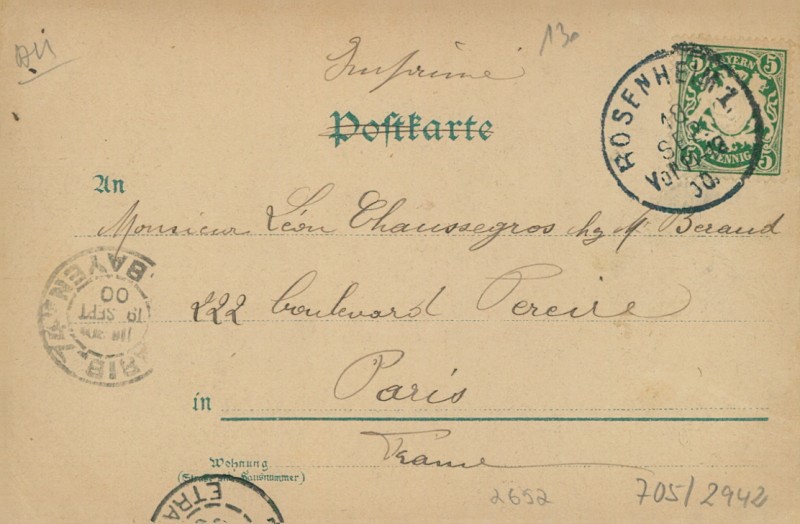 130
Imprimé
Postkarte
5 BAYERN 5
5 PFENNIG 5
ROSENHEIM 1.
18
SEP.
00.
An
Monsieur Léon Chaussegros chz Mr Beraud
222 boulevard Pereire
PARIS
19 SEPT
00
Paris
in
France
Wohnung
(Straße und Hausnummer)
ETRA
2652
705/2942